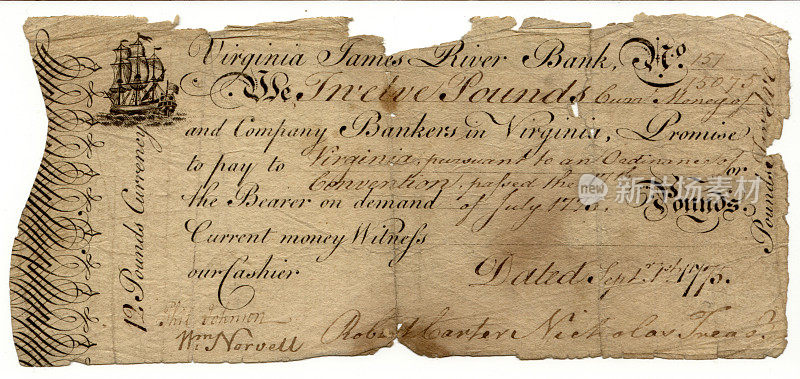 Virginia James River Bank, No. 151
5075
We, Twelve Pounds Curr. Money of
and Company Bankers in Virginia, Promise
to pay to Virginia, pursuant to an Ordinance of
Convention, passed the or
the Bearer on demand of July 1775. Pounds,
Current money Witness
our Cashier
Dated Sept. 1st 1775.
Phil Johnson
Wm. Norvell
Robert Carter Nicholas Treasr.
12 Pounds Currency
Pounds Twelve
new iStock